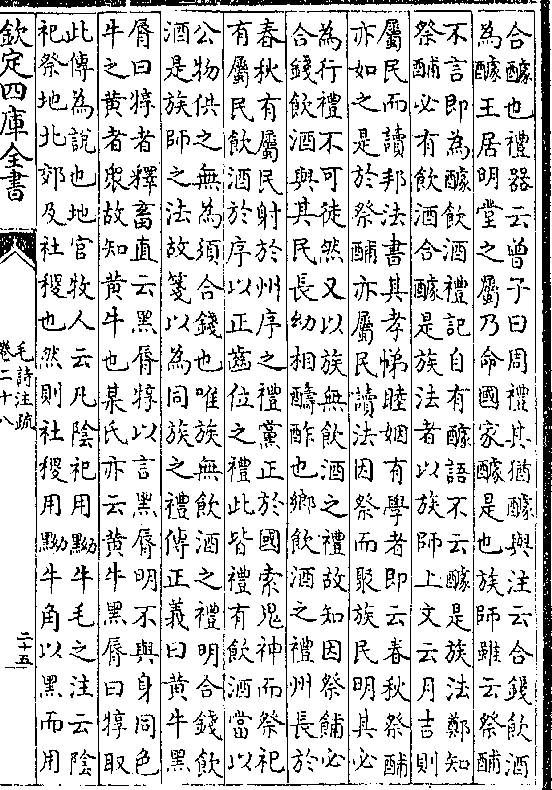 合醵也禮器云曾子曰周禮其猶醵與注云合錢飲酒
為醵王居明堂之屬乃命國家醵是也族師雖云祭酺
不言即為醵飲酒禮記自有醵語不云醵是族法鄭知
祭酺必有飲酒合醵是族法者以族師上文云月吉則
屬民而讀邦法書其孝悌睦婣有學者即云春秋祭酺
亦如之是於祭酺亦屬民讀法因祭而聚族民明其必
為行禮不可徒然又以族無飲酒之禮故知因祭餔必
合錢飲酒與其民長幼相醻酢也鄉飲酒之禮州長於
春秋有屬民射於州序之禮黨正於國索鬼神而祭祀
有屬民飲酒於序以正齒位之禮此皆禮有飲酒當以
公物供之無為須合錢也唯族無飲酒之禮明合錢飲
酒是族師之法故箋以為同族之禮傳正義曰黄牛黑
脣曰犉者釋畜直云黑脣犉以言黑脣明不與身同色
牛之黄者衆故知黄牛也某氏亦云黄牛黑脣曰犉取
此傳為說也地官牧人云凡陰祀用黝牛毛之注云陰
祀祭地北郊及社稷也然則社稷用黝牛角以黑而用
欽定四庫全書
毛詩注疏
卷二十八
二十五